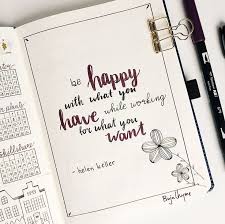 be happy
with what you
have while working
for what you
want
- helen keller